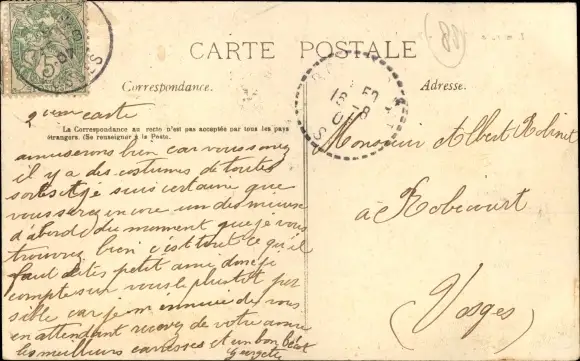 CARTE POSTALE
Correspondance.
Adresse.
2ème carte
La Correspondance au recto n'est pas acceptée par tous les pays
étrangers. (Se renseigner à la Poste.)
amuserons bien car vous savez
il y a des costumes de toutes
sortes et je suis certaine que
vous serez encore un des mieux
d'abord du moment que je vous
trouverez bien c'est tout ce qu'il
faut petit ami donc je
compte sur vous le plus tôt pos
sible car je m'ennuie de vous
en attendant recevez de votre amie
les meilleurs caresses et un bon
Monsieur Albert Robinet
à Robécourt
(Vosges)
5
88